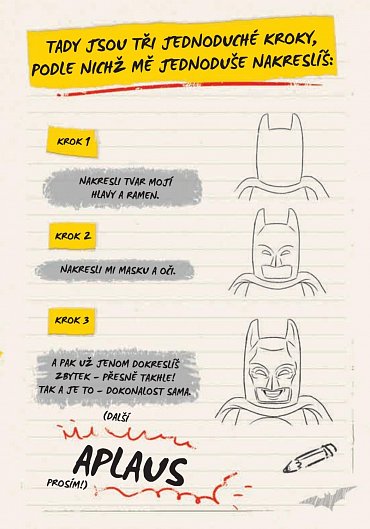 TADY JSOU TŘI JEDNODUCHÉ KROKY,
PODLE NICHŽ MĚ JEDNODUŠE NAKRESLÍŠ:
KROK 1
NAKRESLI TVAR MOJÍ
HLAVY A RAMEN.
KROK 2
NAKRESLI MI MASKU A OČI.
KROK 3
A PAK UŽ JENOM DOKRESLÍŠ
ZBYTEK – PŘESNĚ TAKHLE!
TAK A JE TO – DOKONALOST SAMA.
(DALŠÍ
APLAUS
PROSÍM!)